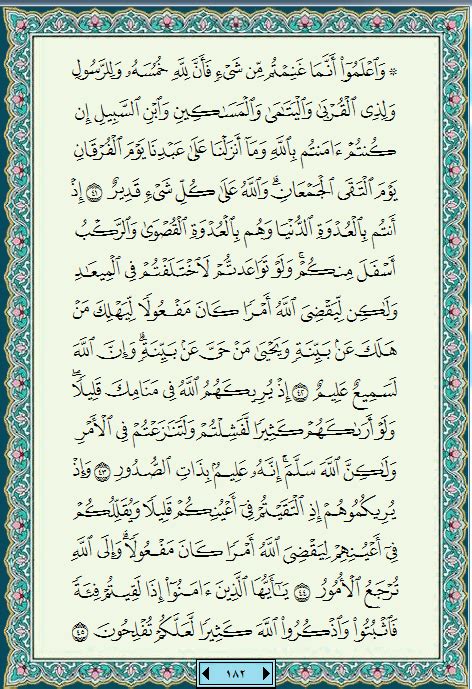 ۞ وَٱعْلَمُوٓا۟ أَنَّمَا غَنِمْتُم مِّن شَىْءٍ فَأَنَّ لِلَّهِ خُمُسَهُۥ وَلِلرَّسُولِ
وَلِذِى ٱلْقُرْبَىٰ وَٱلْيَتَـٰمَىٰ وَٱلْمَسَـٰكِينِ وَٱبْنِ ٱلسَّبِيلِ إِن
كُنتُمْ ءَامَنتُم بِٱللَّهِ وَمَآ أَنزَلْنَا عَلَىٰ عَبْدِنَا يَوْمَ ٱلْفُرْقَانِ
يَوْمَ ٱلْتَقَى ٱلْجَمْعَانِ ۗ وَٱللَّهُ عَلَىٰ كُلِّ شَىْءٍ قَدِيرٌ ٤١ إِذْ
أَنتُم بِٱلْعُدْوَةِ ٱلدُّنْيَا وَهُم بِٱلْعُدْوَةِ ٱلْقُصْوَىٰ وَٱلرَّكْبُ
أَسْفَلَ مِنكُمْ ۚ وَلَوْ تَوَاعَدتُّمْ لَٱخْتَلَفْتُمْ فِى ٱلْمِيعَـٰدِ ۙ
وَلَـٰكِن لِّيَقْضِىَ ٱللَّهُ أَمْرًا كَانَ مَفْعُولًا لِّيَهْلِكَ مَنْ
هَلَكَ عَنۢ بَيِّنَةٍ وَيَحْيَىٰ مَنْ حَىَّ عَنۢ بَيِّنَةٍ ۗ وَإِنَّ ٱللَّهَ
لَسَمِيعٌ عَلِيمٌ ٤٢ إِذْ يُرِيكَهُمُ ٱللَّهُ فِى مَنَامِكَ قَلِيلًا ۖ
وَلَوْ أَرَىٰكَهُمْ كَثِيرًا لَّفَشِلْتُمْ وَلَتَنَـٰزَعْتُمْ فِى ٱلْأَمْرِ
وَلَـٰكِنَّ ٱللَّهَ سَلَّمَ ۗ إِنَّهُۥ عَلِيمٌۢ بِذَاتِ ٱلصُّدُورِ ٤٣ وَإِذْ
يُرِيكُمُوهُمْ إِذِ ٱلْتَقَيْتُمْ فِىٓ أَعْيُنِكُمْ قَلِيلًا وَيُقَلِّلُكُمْ
فِىٓ أَعْيُنِهِمْ لِيَقْضِىَ ٱللَّهُ أَمْرًا كَانَ مَفْعُولًا ۗ وَإِلَى ٱللَّهِ
تُرْجَعُ ٱلْأُمُورُ ٤٤ يَـٰٓأَيُّهَا ٱلَّذِينَ ءَامَنُوٓا۟ إِذَا لَقِيتُمْ فِئَةً
فَٱثْبُتُوا۟ وَٱذْكُرُوا۟ ٱللَّهَ كَثِيرًا لَّعَلَّكُمْ تُفْلِحُونَ ٤٥
١٨٢